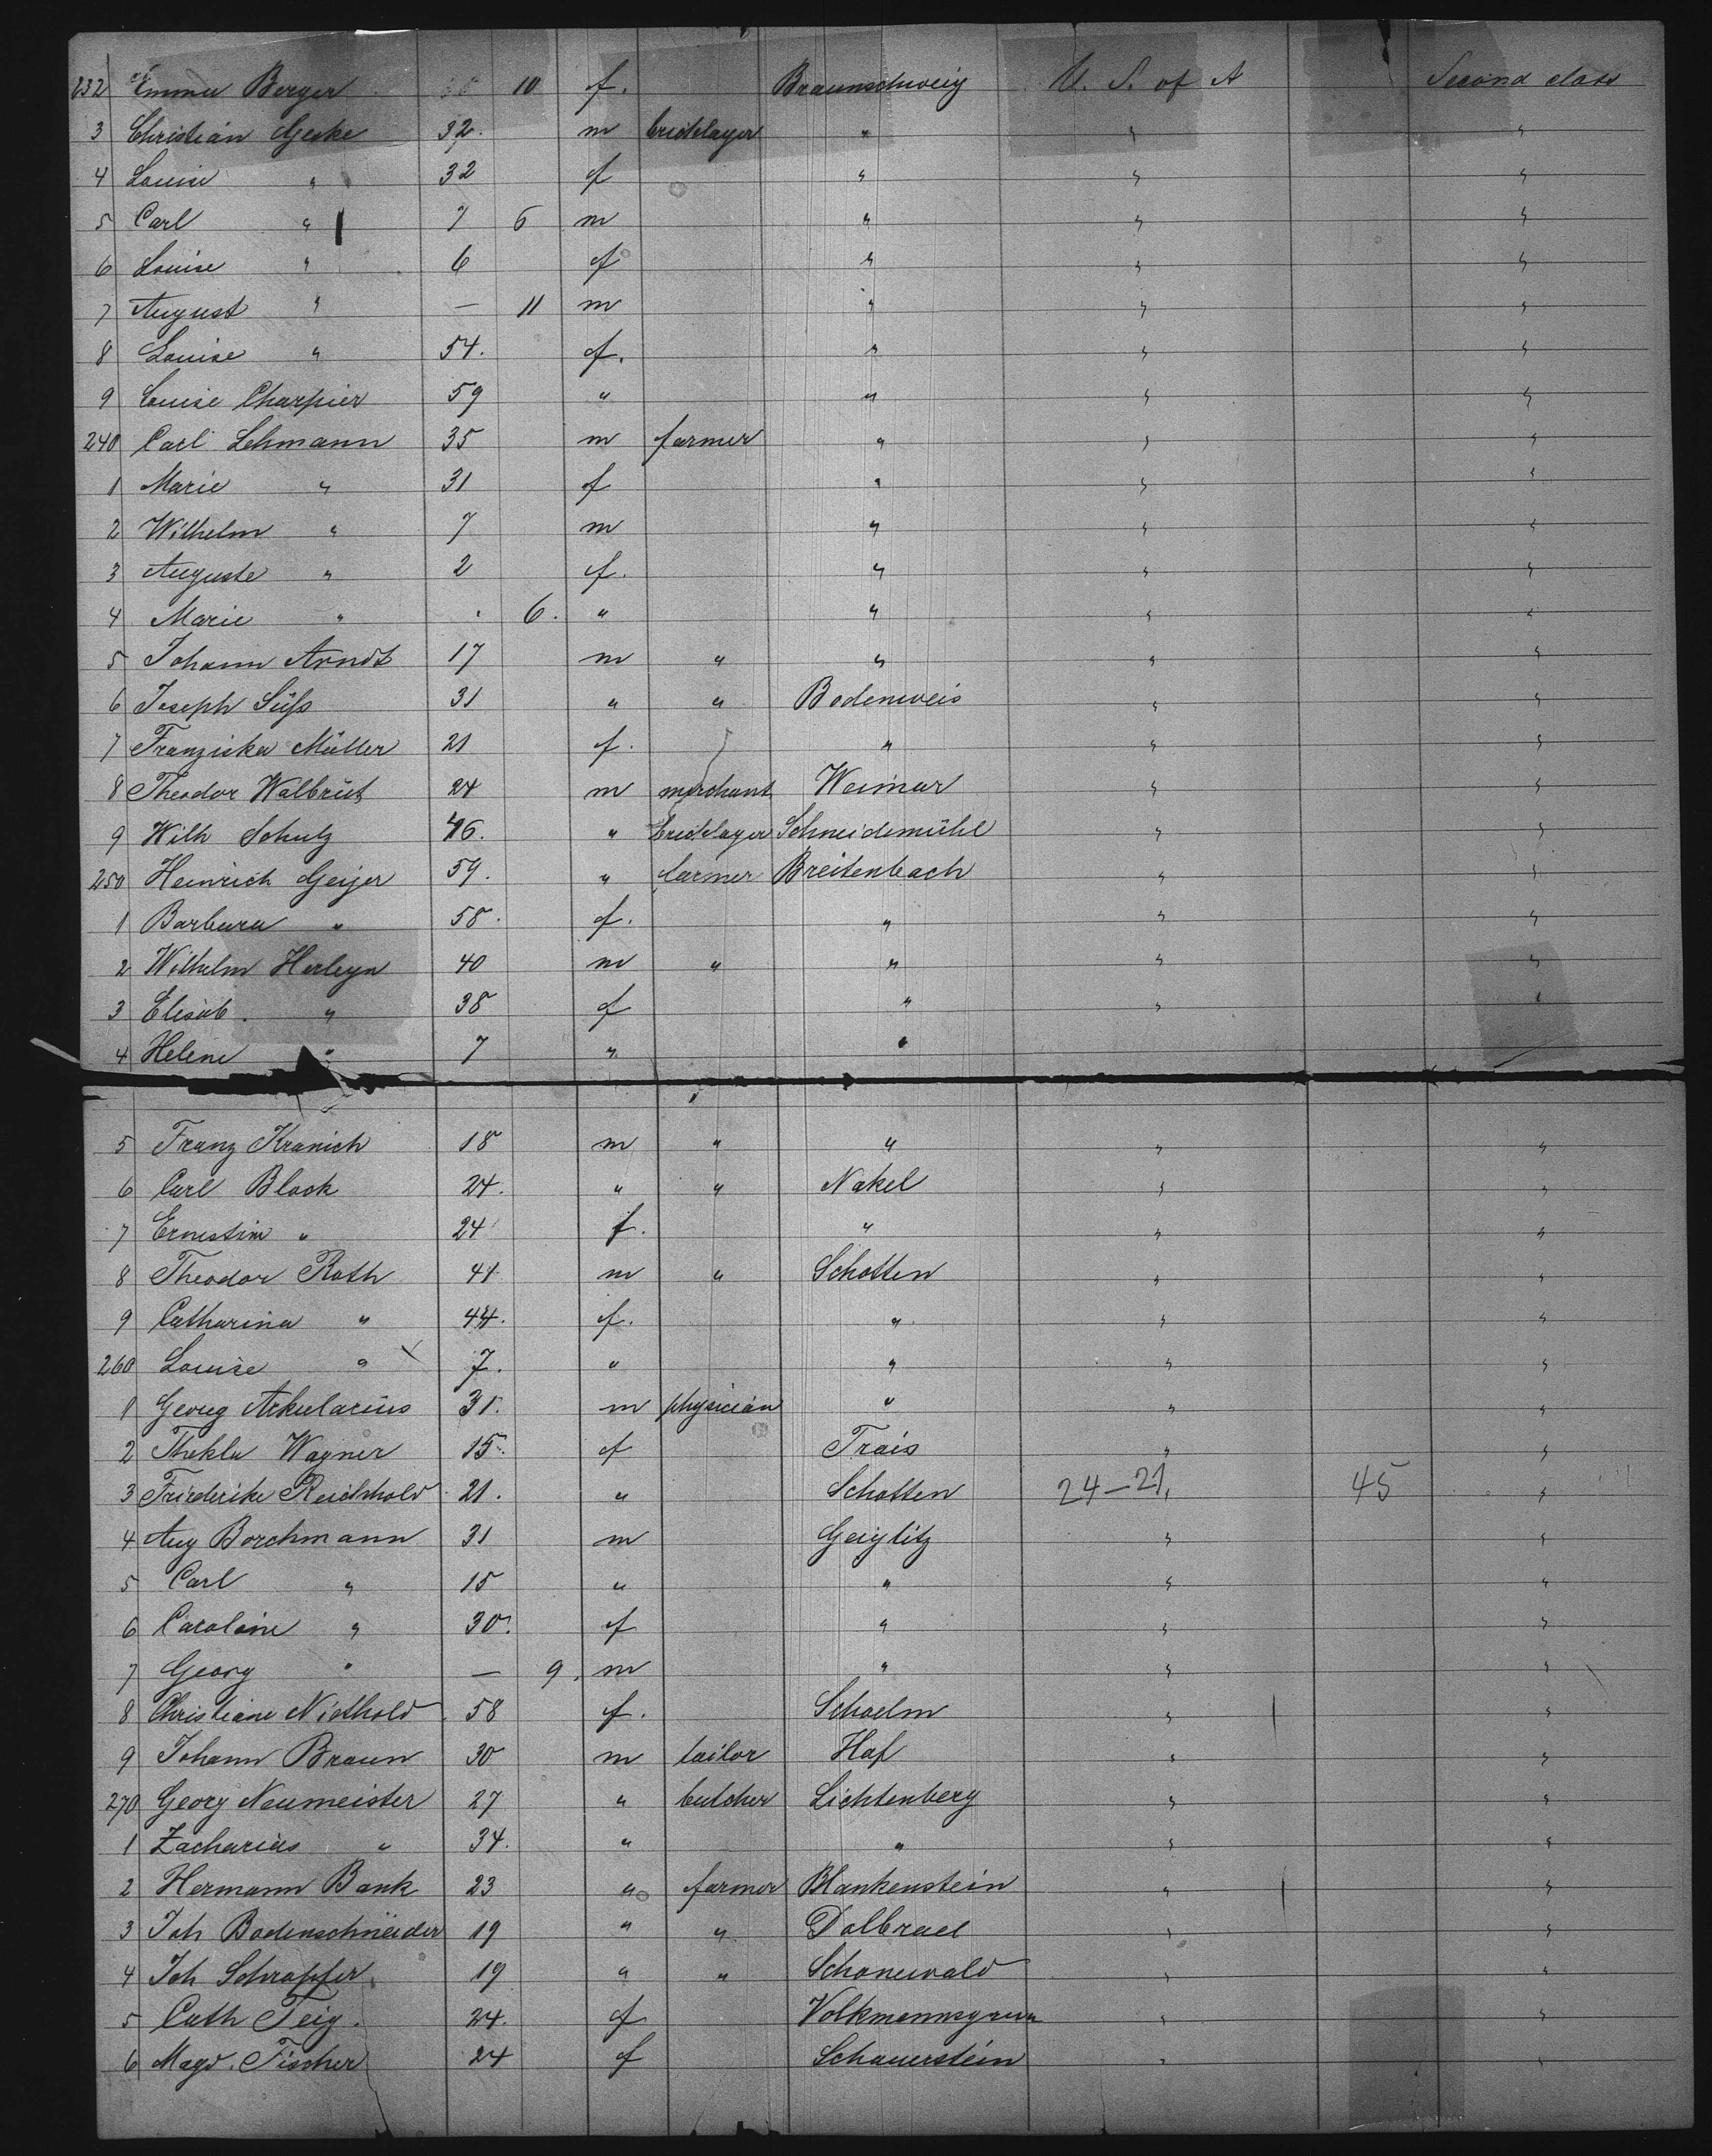 232 Emma Berger 10 f. Braunschweig U. S. of A Second class
3 Christian Geske 32. m bricklayer " " "
4 Louise " 32 f " " "
5 Carl " 7 6 m " " "
6 Louise " 6 f " " "
7 August " — 11 m " " "
8 Louise " 54. f. " " "
9 Louise Charpier 59 " " " "
240 Carl Lehmann 35 m farmer " " "
1 Marie " 31 f " " "
2 Wilhelm " 7 m " " "
3 Auguste " 2 f. " " "
4 Marie " " 6. " " " "
5 Johann Arndt 17 m " " " "
6 Joseph Süß 31 " " Bodenweis " "
7 Franziska Müller 21 f. " " "
8 Theodor Walbrüt 24 m merchant Weimar " "
9 Wilh Schulz 46. " bricklayer Schneidemühl " "
250 Heinrich Geiger 59. " farmer Breitenbach " "
1 Barbara " 58. f. " " "
2 Wilhelm Herleyn 40 m " " " "
3 Elisab. " 38 f " " "
4 Helene " 7 " "
5 Franz Kranich 18 m " " " "
6 Carl Block 24. " " Nakel " "
7 Ernestine " 24 f. " " "
8 Theodor Roth 41 m " Schotten " "
9 Catharina " 44. f. " " "
260 Louise " 7. " " " "
1 Georg Arkularius 31. m physician " " "
2 Thekla Wagner 15. f Trais " "
3 Friederike Reichhold 21. " Schotten 24-21, 45 "
4 Aug Borchmann 31 m Geiglitz " "
5 Carl " 15 " " " "
6 Caroline " 30. f " " "
7 Georg " — 9. m " " "
8 Christiane Niethold 58 f. Schoelm " "
9 Johann Braun 30 m tailor Hof " "
270 Georg Neumeister 27 " butcher Lichtenberg " "
1 Zacharias " 34. " " " "
2 Hermann Bank 23 " farmer Blankenstein " "
3 Joh Bodenschneider 19 " " Dolbrael " "
4 Joh Schrapfer 19 " " Schonewald " "
5 Cath Feig. 24. f Volkmannsgrun " "
6 Magd. Fischer 24 f Schauerstein " "